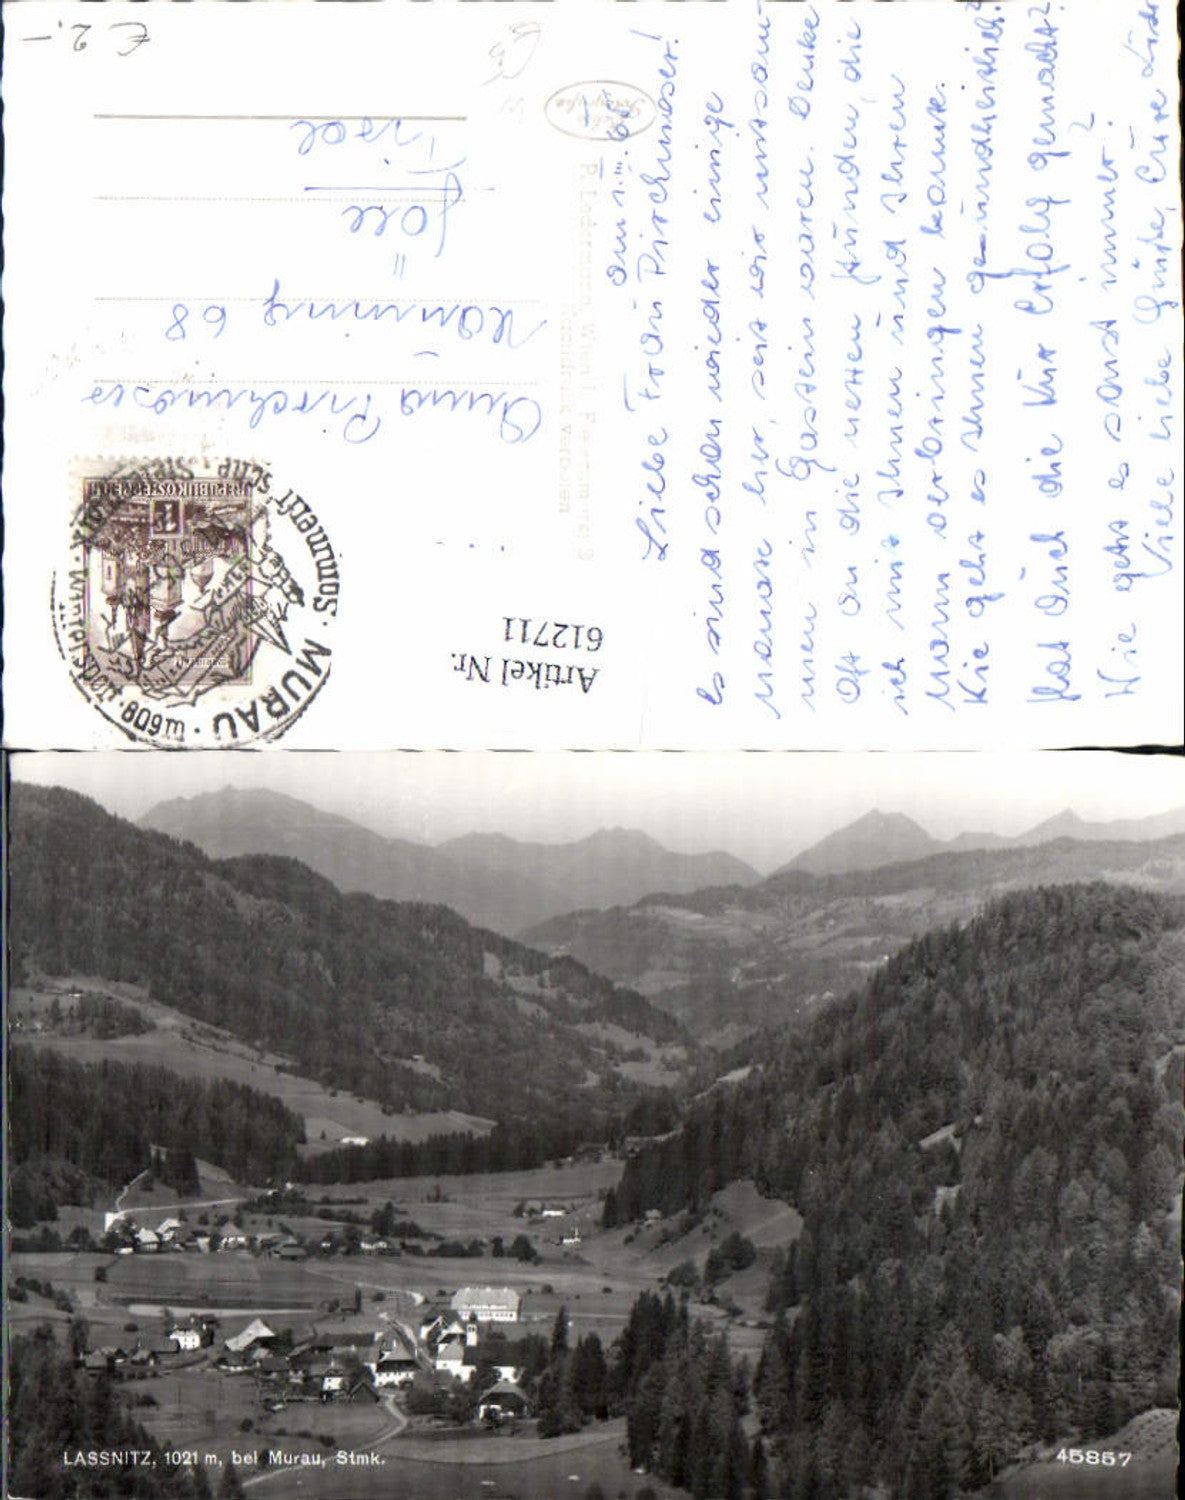 Am 1. III. 61
Liebe Frau Pirchmoser!
Es sind schon wieder einige
Monate her, seit wir zusam-
men in Gastein waren. Denke
oft an die netten Stunden, die
ich mit Ihnen und Ihrem
Mann verbringen konnte.
Wie geht es Ihnen gesundheitlich?
Hat Auch die Kur Erfolg gemacht?
Wie geht es sonst immer?
Viele liebe Grüße, Eure
Anna Pirchmoser
Häring 68
Tirol
REPUBLIK ÖSTERREICH
MURAU
809m
Sommerfrische
Wintersport
P. Ledermann, Wien I,
Artikel Nr.
612711
€ 2.-
LASSNITZ, 1021 m, bei Murau, Stmk.
45857